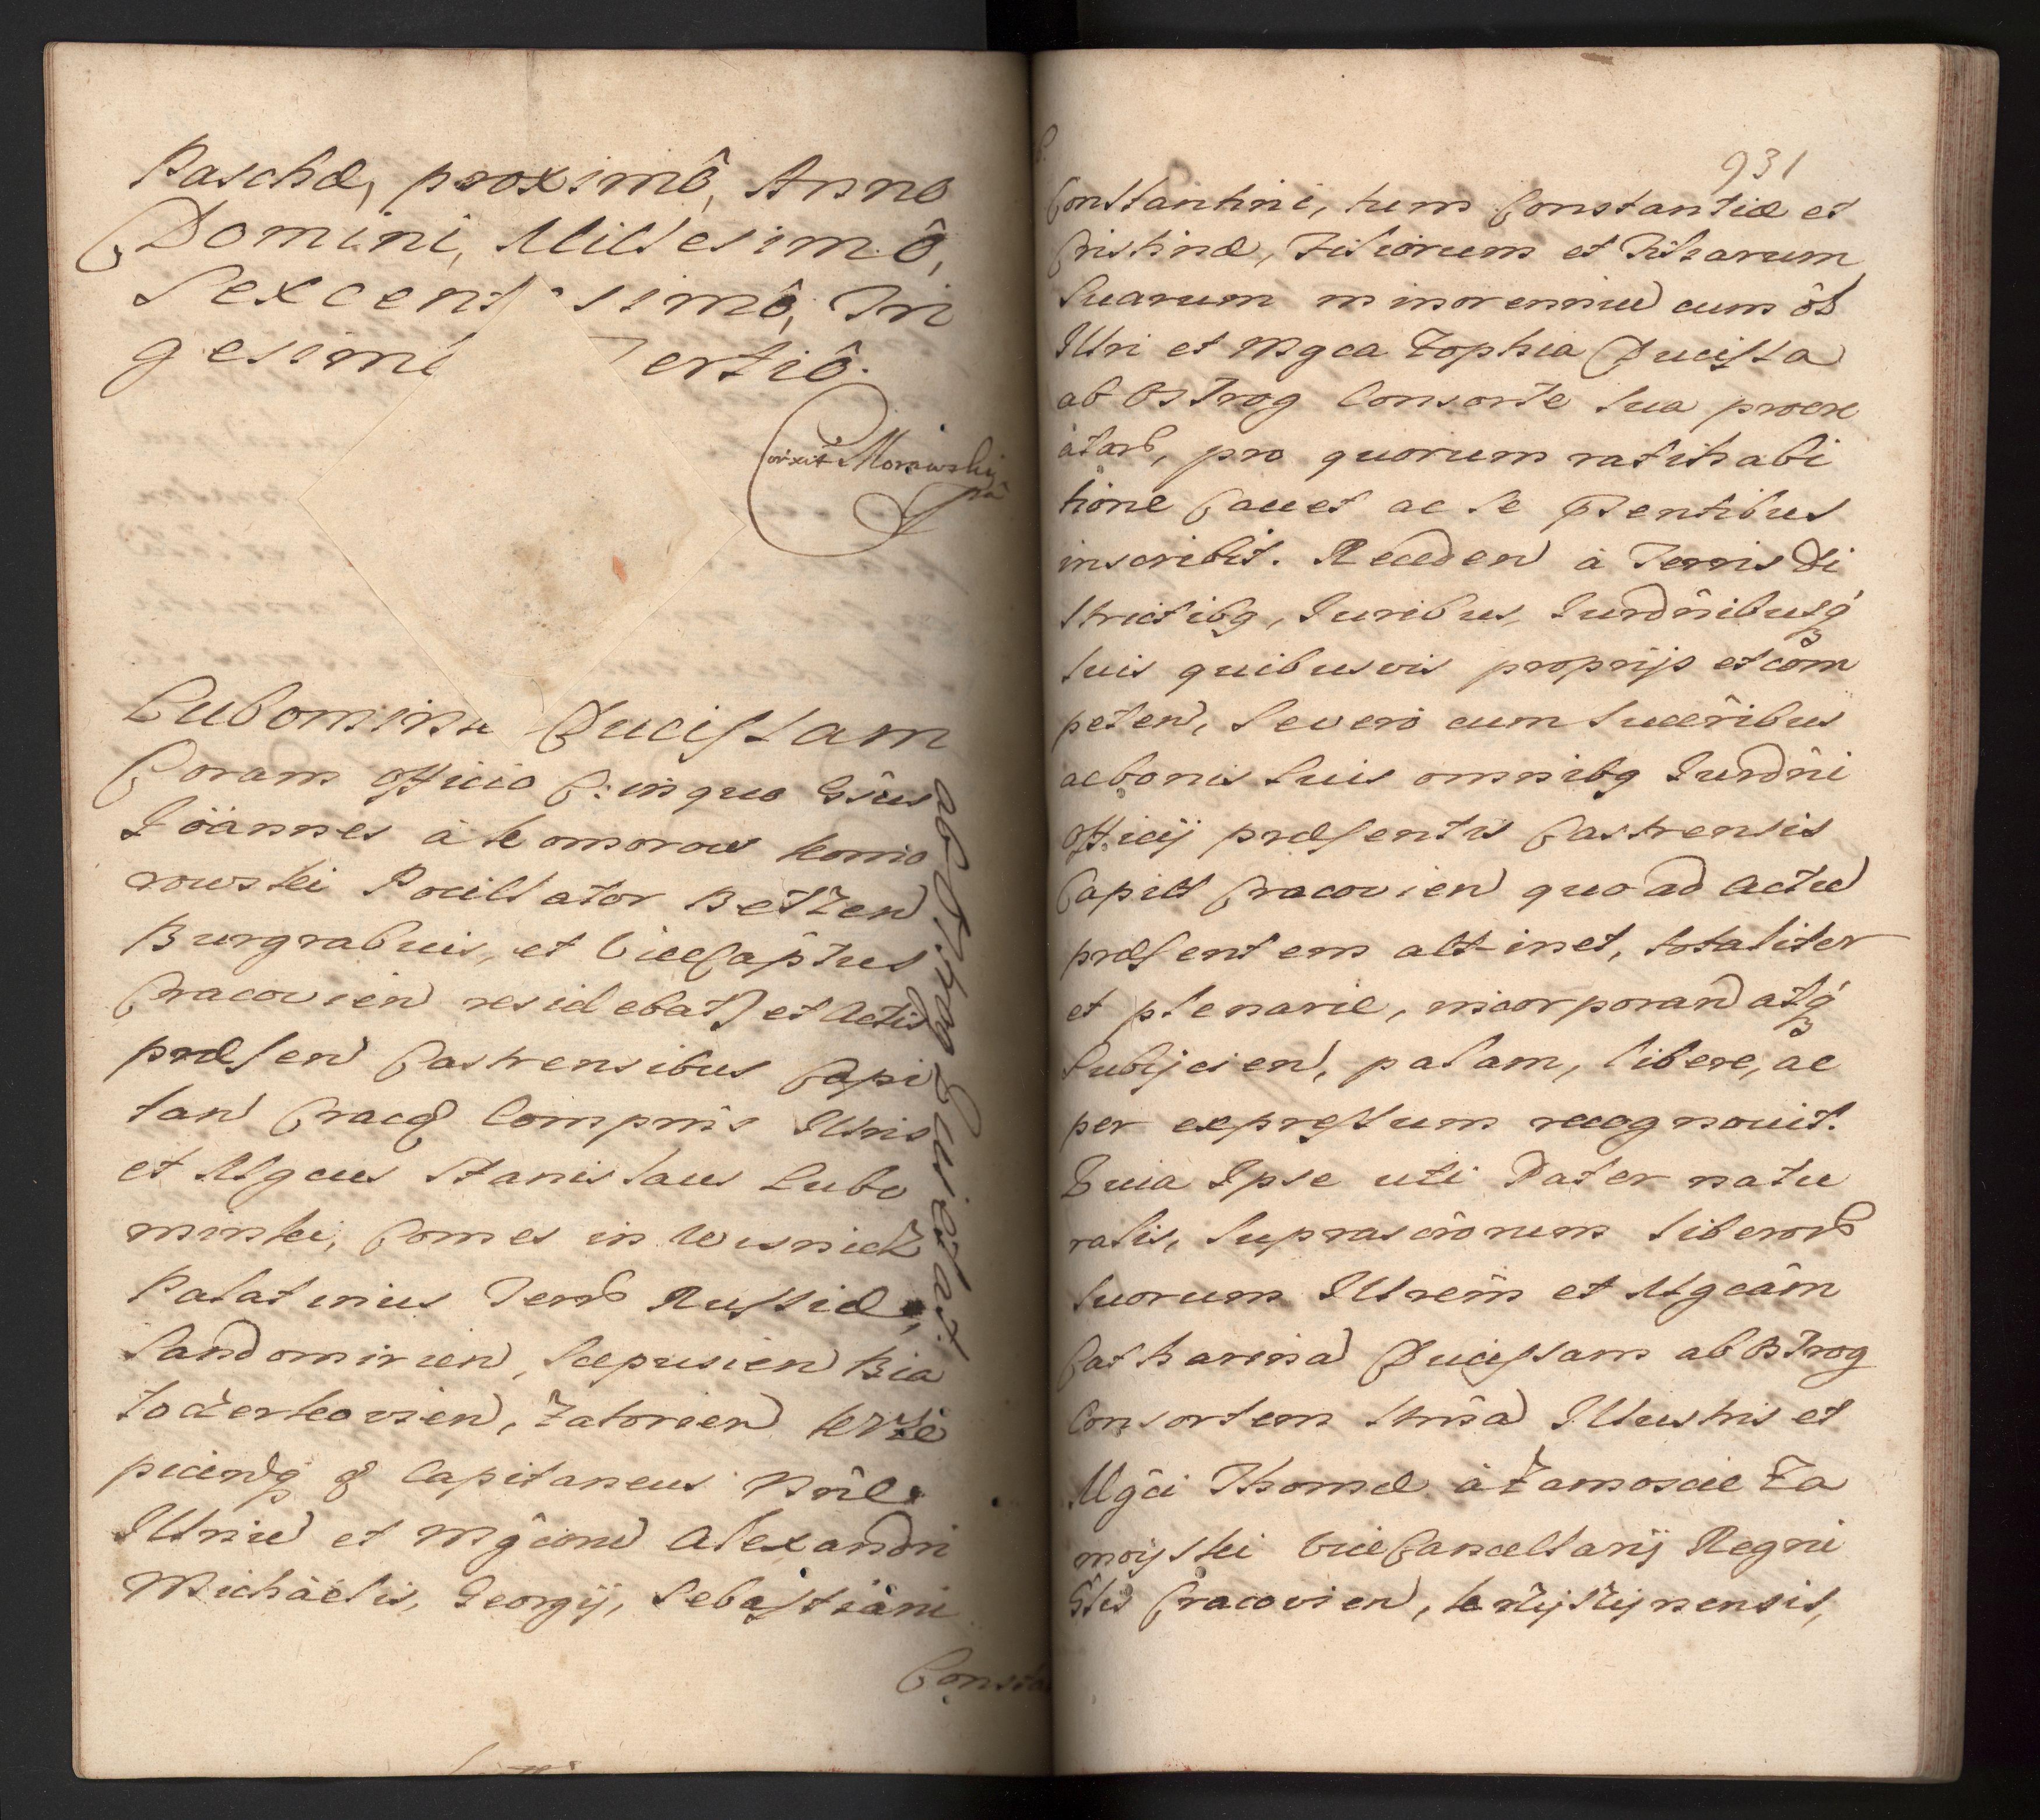 Paschæ, proximô, Anno
Domini, Millesimô,
Sexcent simô, Tri
gesim ertiô.
Corrixit Morawski
pâ
Lubomirski Ducissam
ab Ostrog Quietat.
Coram officio C. in quo Gn̂sus
Ioannes à Komorow Komo
rowski Pocillator Bełzen
Burgrabius, et ViceCap̂tus
Cracovien residebat, et Actis
præsen Castrensibus Capi
tan Cracoꝫ Comprns Illris
et Mgcus Stanislaus Lubo
mirski, Comes in Wisnicz
Palatinus Terrꝝ Russiæ,
Sandomirien, Scepusien Bia
łocerkovien, Zatorien Krze
picenꝗ & Capitaneus Nn̂e
Illriu et Mgĉoru Alexandri
Michäelis, Georgij, Sebastiäni
Consta
931
Constantini, tum Constantiæ et
Cristinæ, Filiorum et Filiarum
Suarum minorenniu cum ôl
Illri et Mgca Zophia Ducissa
ab Ostrog Consorte sua procre
atorꝝ, pro quorum ratihabi
tione Cavet ac se p̄sentibus
inscribit. Receden à Terris Di
strictibꝗ, Iuribus, Iurdn̂ibusꝗ
suis quibusvis proprijs et com
peten, Se vero cum succêribus
ac bonis suis omnibꝗ Iurdn̂i
officij præsentis Castrensis
Capitl Cracovien quo ad Actu
præsentem attinet, totaliter
et plenarie, incorporan atꝗ
Subijcien, palam, libere, ac
per expressum recognovit.
Quia Ipse uti Pater natu
ralis, suprascrônum liberorꝝ
suorum Illrem̂ et Mgcâm
Catharina Ducissam ab Ostrog
Consortem Illrîs Illustris et
Mgĉi Thomæ à Zamoscie Za
moyski ViceCancellarij Regni
Gîlis Cracovien, Knyszynensis,